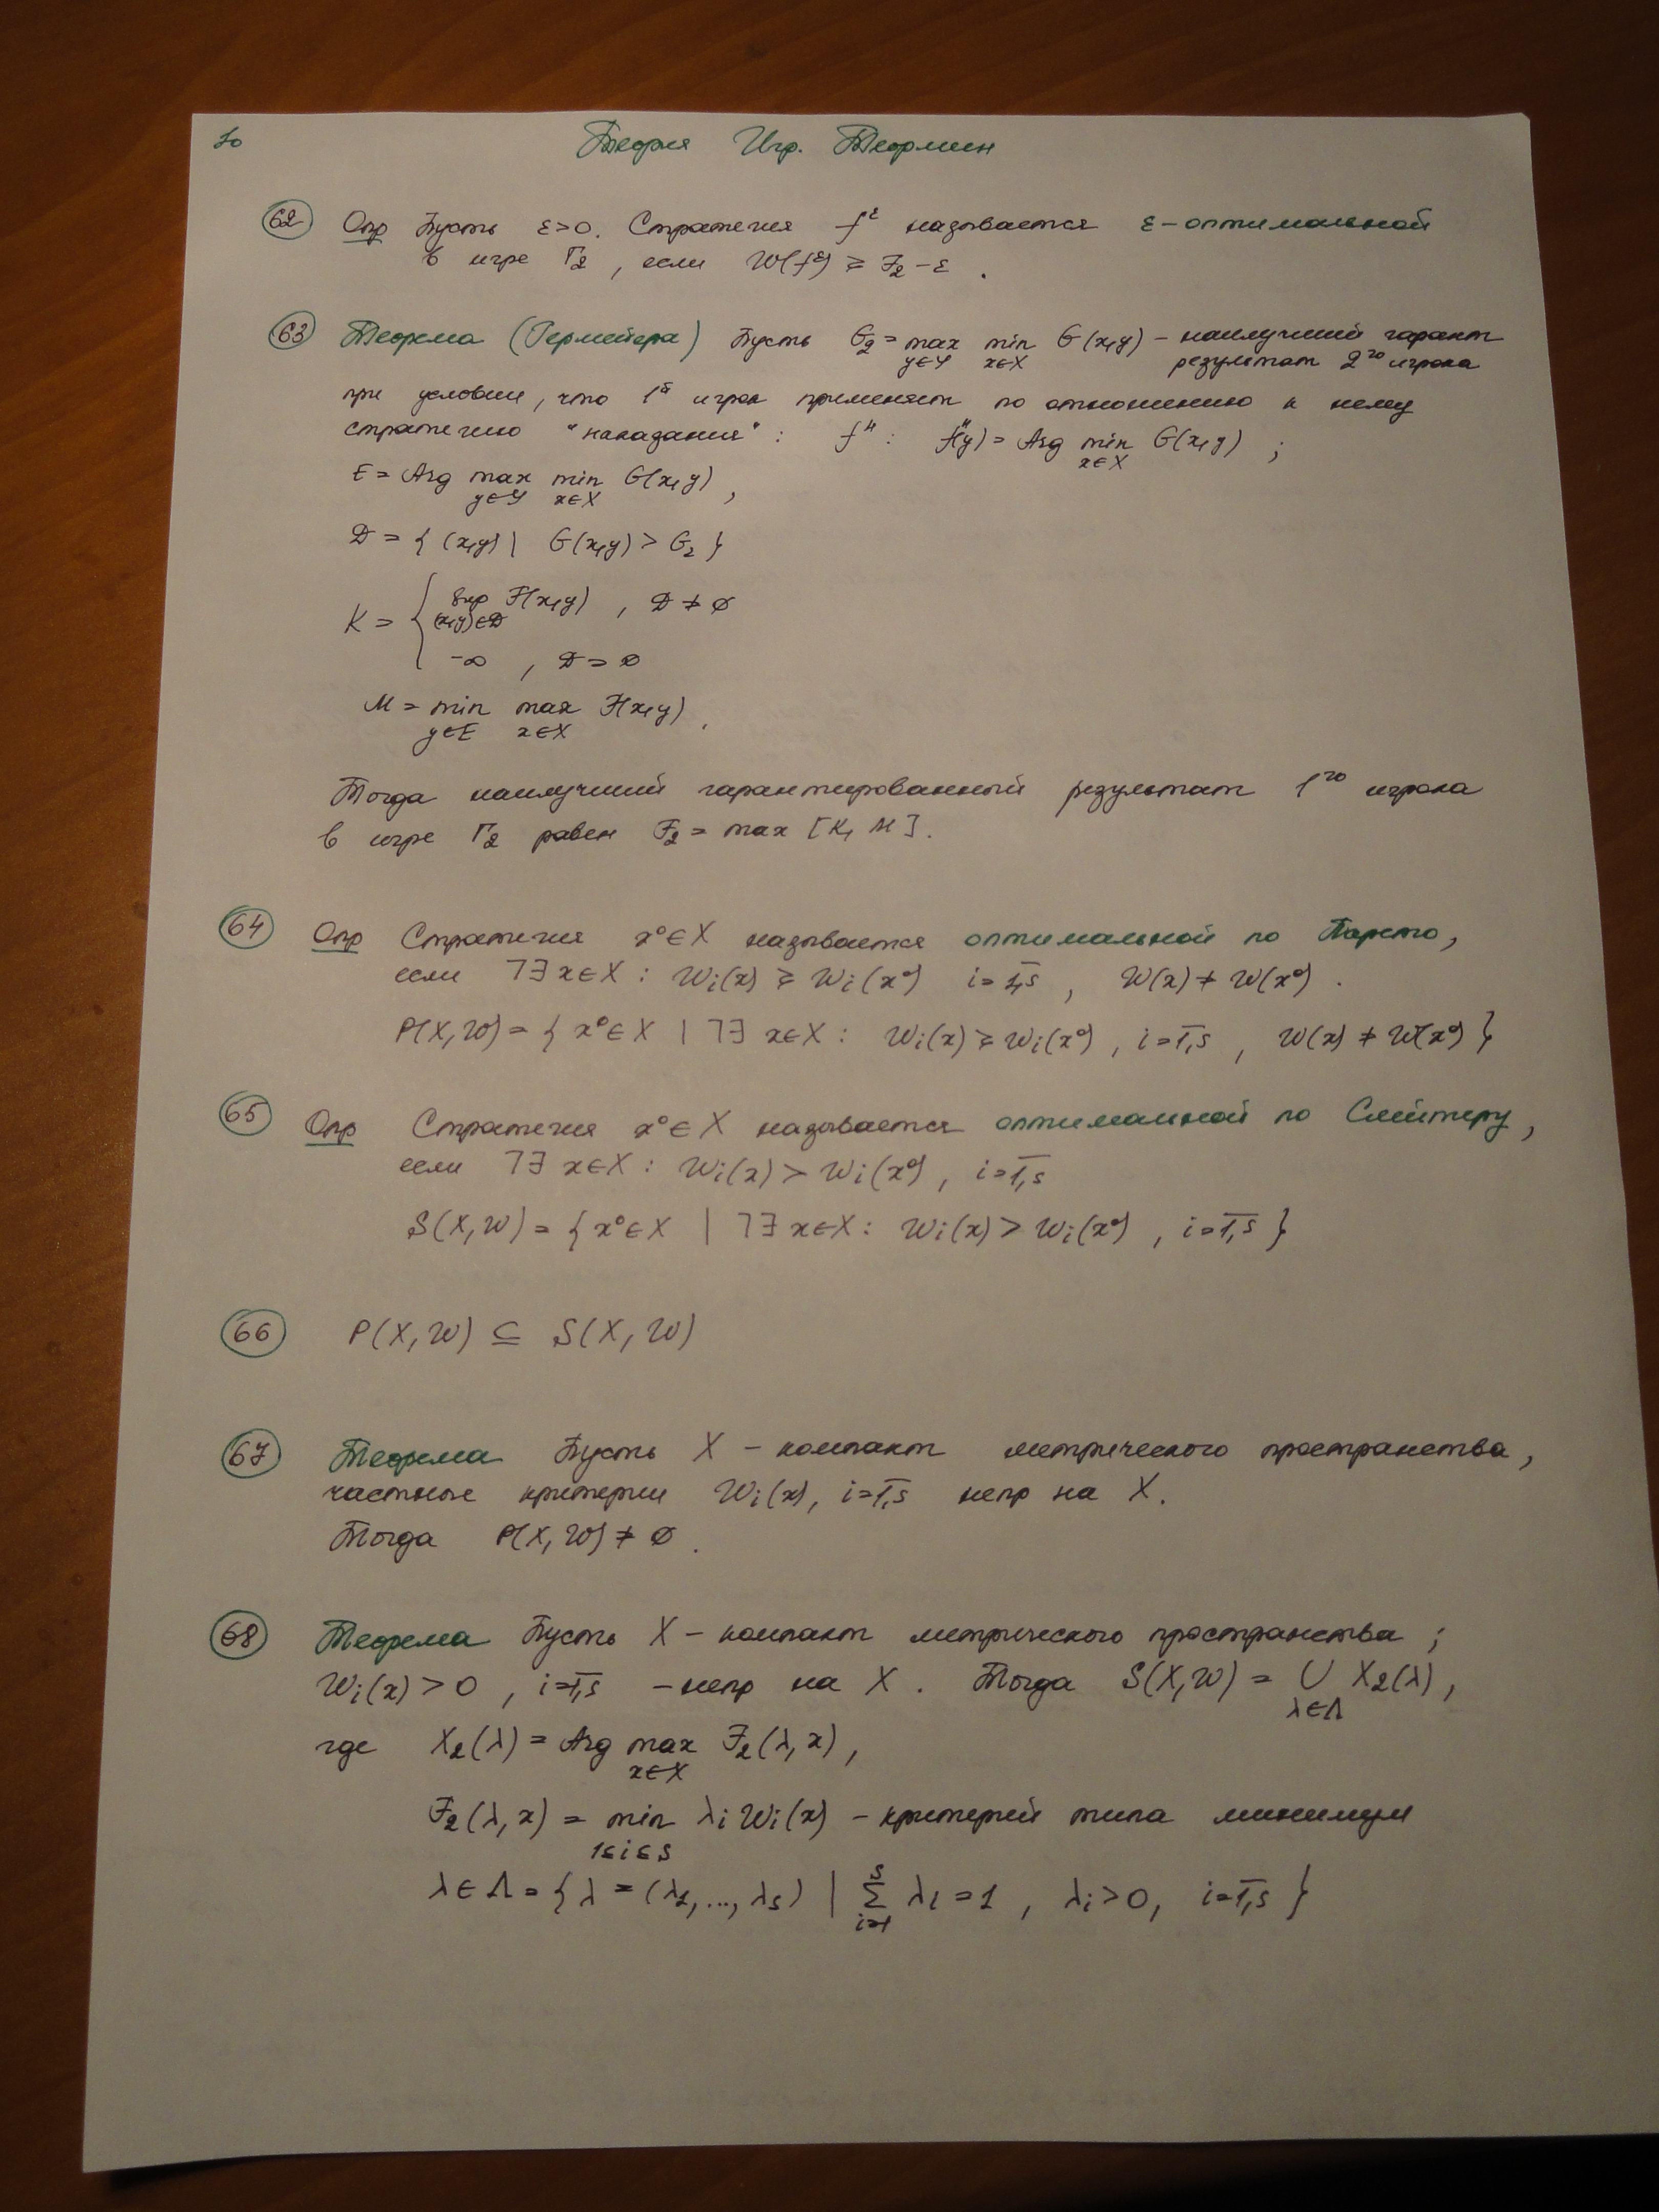 10 Теория Игр. Теормин
62 Опр Пусть ε>0. Стратегия f^ε называется ε-оптимальной
в игре Г₂, если W(f^ε) ⩾ F₂-ε.
63 Теорема (Гермейера) Пусть G₂ = max min G(x,y) – наилучший гарант
y∈Y x∈X результат 2го игрока
при условии, что 1й игрок применяет по отношению к нему
стратегию "наказания": fᴴ: fᴴ(y) = Arg min G(x,y);
x∈X
E = Arg max min G(x,y),
y∈Y x∈X
D = { (x,y) | G(x,y) > G₂ }
K = { sup F(x,y), D ≠ ∅
(x,y)∈D
-∞, D = ∅
M = min max F(x,y).
y∈E x∈X
Тогда наилучший гарантированный результат 1го игрока
в игре Г₂ равен F₂ = max [K, M].
64 Опр Стратегия x⁰∈X называется оптимальной по Парето,
если ⌉∃ x∈X: Wi(x) ⩾ Wi(x⁰) i=1,s, W(x) ≠ W(x⁰).
P(X,W) = { x⁰∈X | ⌉∃ x∈X: Wi(x) ⩾ Wi(x⁰), i=1,s, W(x) ≠ W(x⁰) }
65 Опр Стратегия x⁰∈X называется оптимальной по Слейтеру,
если ⌉∃ x∈X: Wi(x) > Wi(x⁰), i=1,s
S(X,W) = { x⁰∈X | ⌉∃ x∈X: Wi(x) > Wi(x⁰), i=1,s }
66 P(X,W) ⊆ S(X,W)
67 Теорема Пусть X – компакт метрического пространства,
частные критерии Wi(x), i=1,s непр на X.
Тогда P(X,W) ≠ ∅.
68 Теорема Пусть X – компакт метрического пространства;
Wi(x) > 0, i=1,s – непр на X. Тогда S(X,W) = ∪ X₂(λ),
λ∈Λ
где X₂(λ) = Arg max F₂(λ,x),
x∈X
F₂(λ,x) = min λi Wi(x) – критерий типа минимум
1≤i≤s
λ∈Λ = { λ = (λ₁,..., λs) | Σ λi = 1, λi > 0, i=1,s }